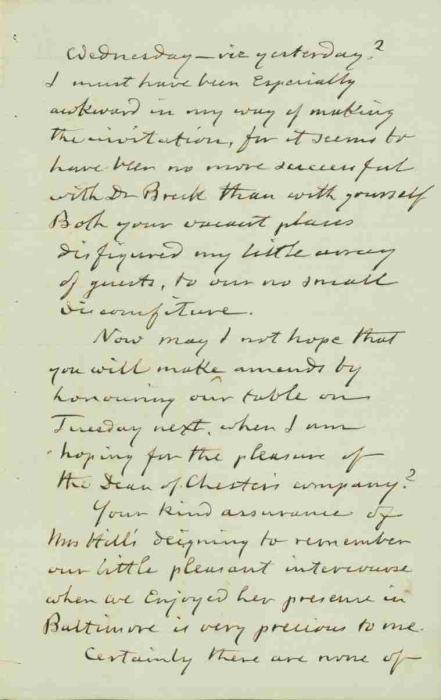 Wednesday — viz yesterday?
I must have been Especially
awkward in my way of making
the invitation, for it seems to
have been no more successful
with Dr Breck than with yourself
Both your vacant places
disfigured my little array
of guests, to our no small
discomfiture.
Now may I not hope that
you will make amends by
honouring our table on
Tuesday next, when I am
hoping for the pleasure of
the Dean of Chester's company?
Your kind assurance of
Mrs Hill's deigning to remember
our little pleasant intercourse
when we Enjoyed her presence in
Baltimore is very precious to me.
Certainly there are none of